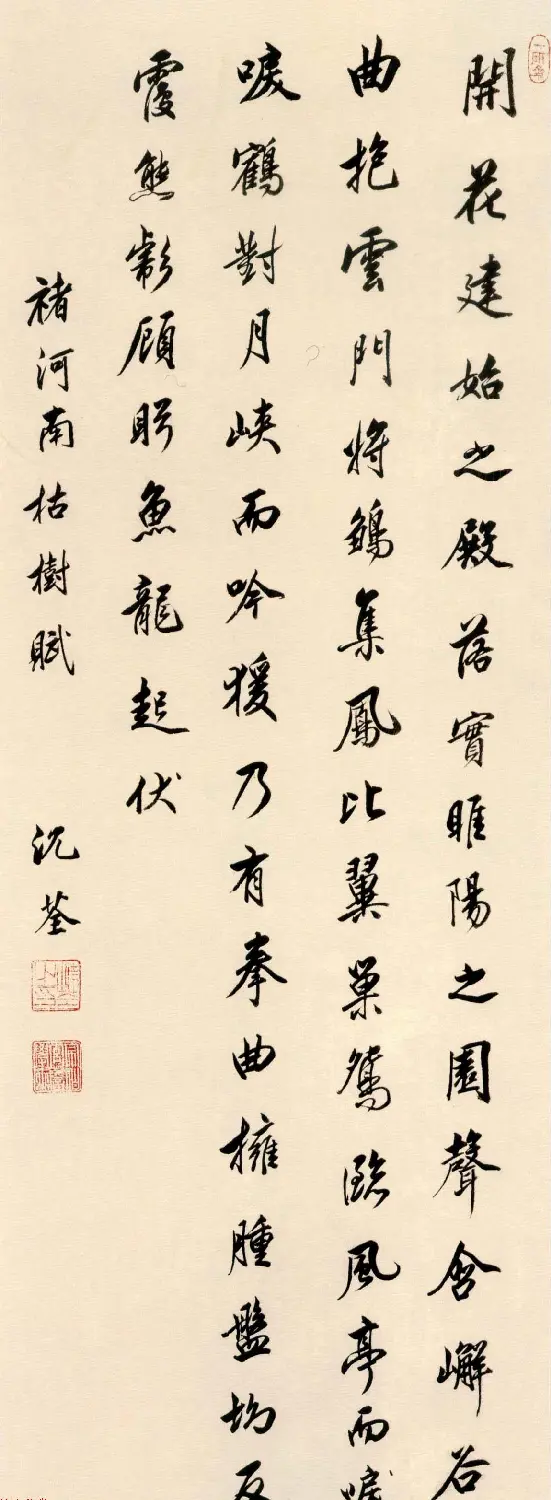 開花建始之殿落實睢陽之園聲含嶰谷
曲抱雲門將鶵集鳳比翼巢鴛臨風亭而唳
唳鶴對月峽而吟猨乃有拳曲擁腫盤坳反
覆熊彪顧盼魚龍起伏
褚河南枯樹賦
沈荃